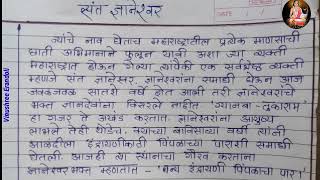 संत ज्ञानेश्वर
ज्यांचे नाव घेताच महाराष्ट्रातील प्रत्येक माणसाची
छाती अभिमानाने फुलून यावी अशा ज्या व्यक्ती
महाराष्ट्रात होऊन गेल्या त्यांपैकी एक सर्वश्रेष्ठ व्यक्ती
म्हणजे संत ज्ञानेश्वर. ज्ञानेश्वरांना समाधी घेऊन आज
जवळजवळ सातशे वर्षे होत आली तरी ज्ञानेश्वरांचे
भक्त ज्ञानदेवांना विसरले नाहीत "ग्यानबा-तुकाराम"
हा गजर ते अखंड करतात. ज्ञानेश्वरांना आयुष्य
लाभले तेही थोडेच. वयाच्या बाविसाव्या वर्षी त्यांनी
आळंदीला इंद्रायणीकाठी पिंपळाच्या पाराशी समाधी
घेतली. आजही त्या स्थानाचा गौरव करताना
ज्ञानेश्वरभक्त म्हणतात - 'धन्य इंद्रायणी पिंपळाचा पार।'
Vinushree Erandoli